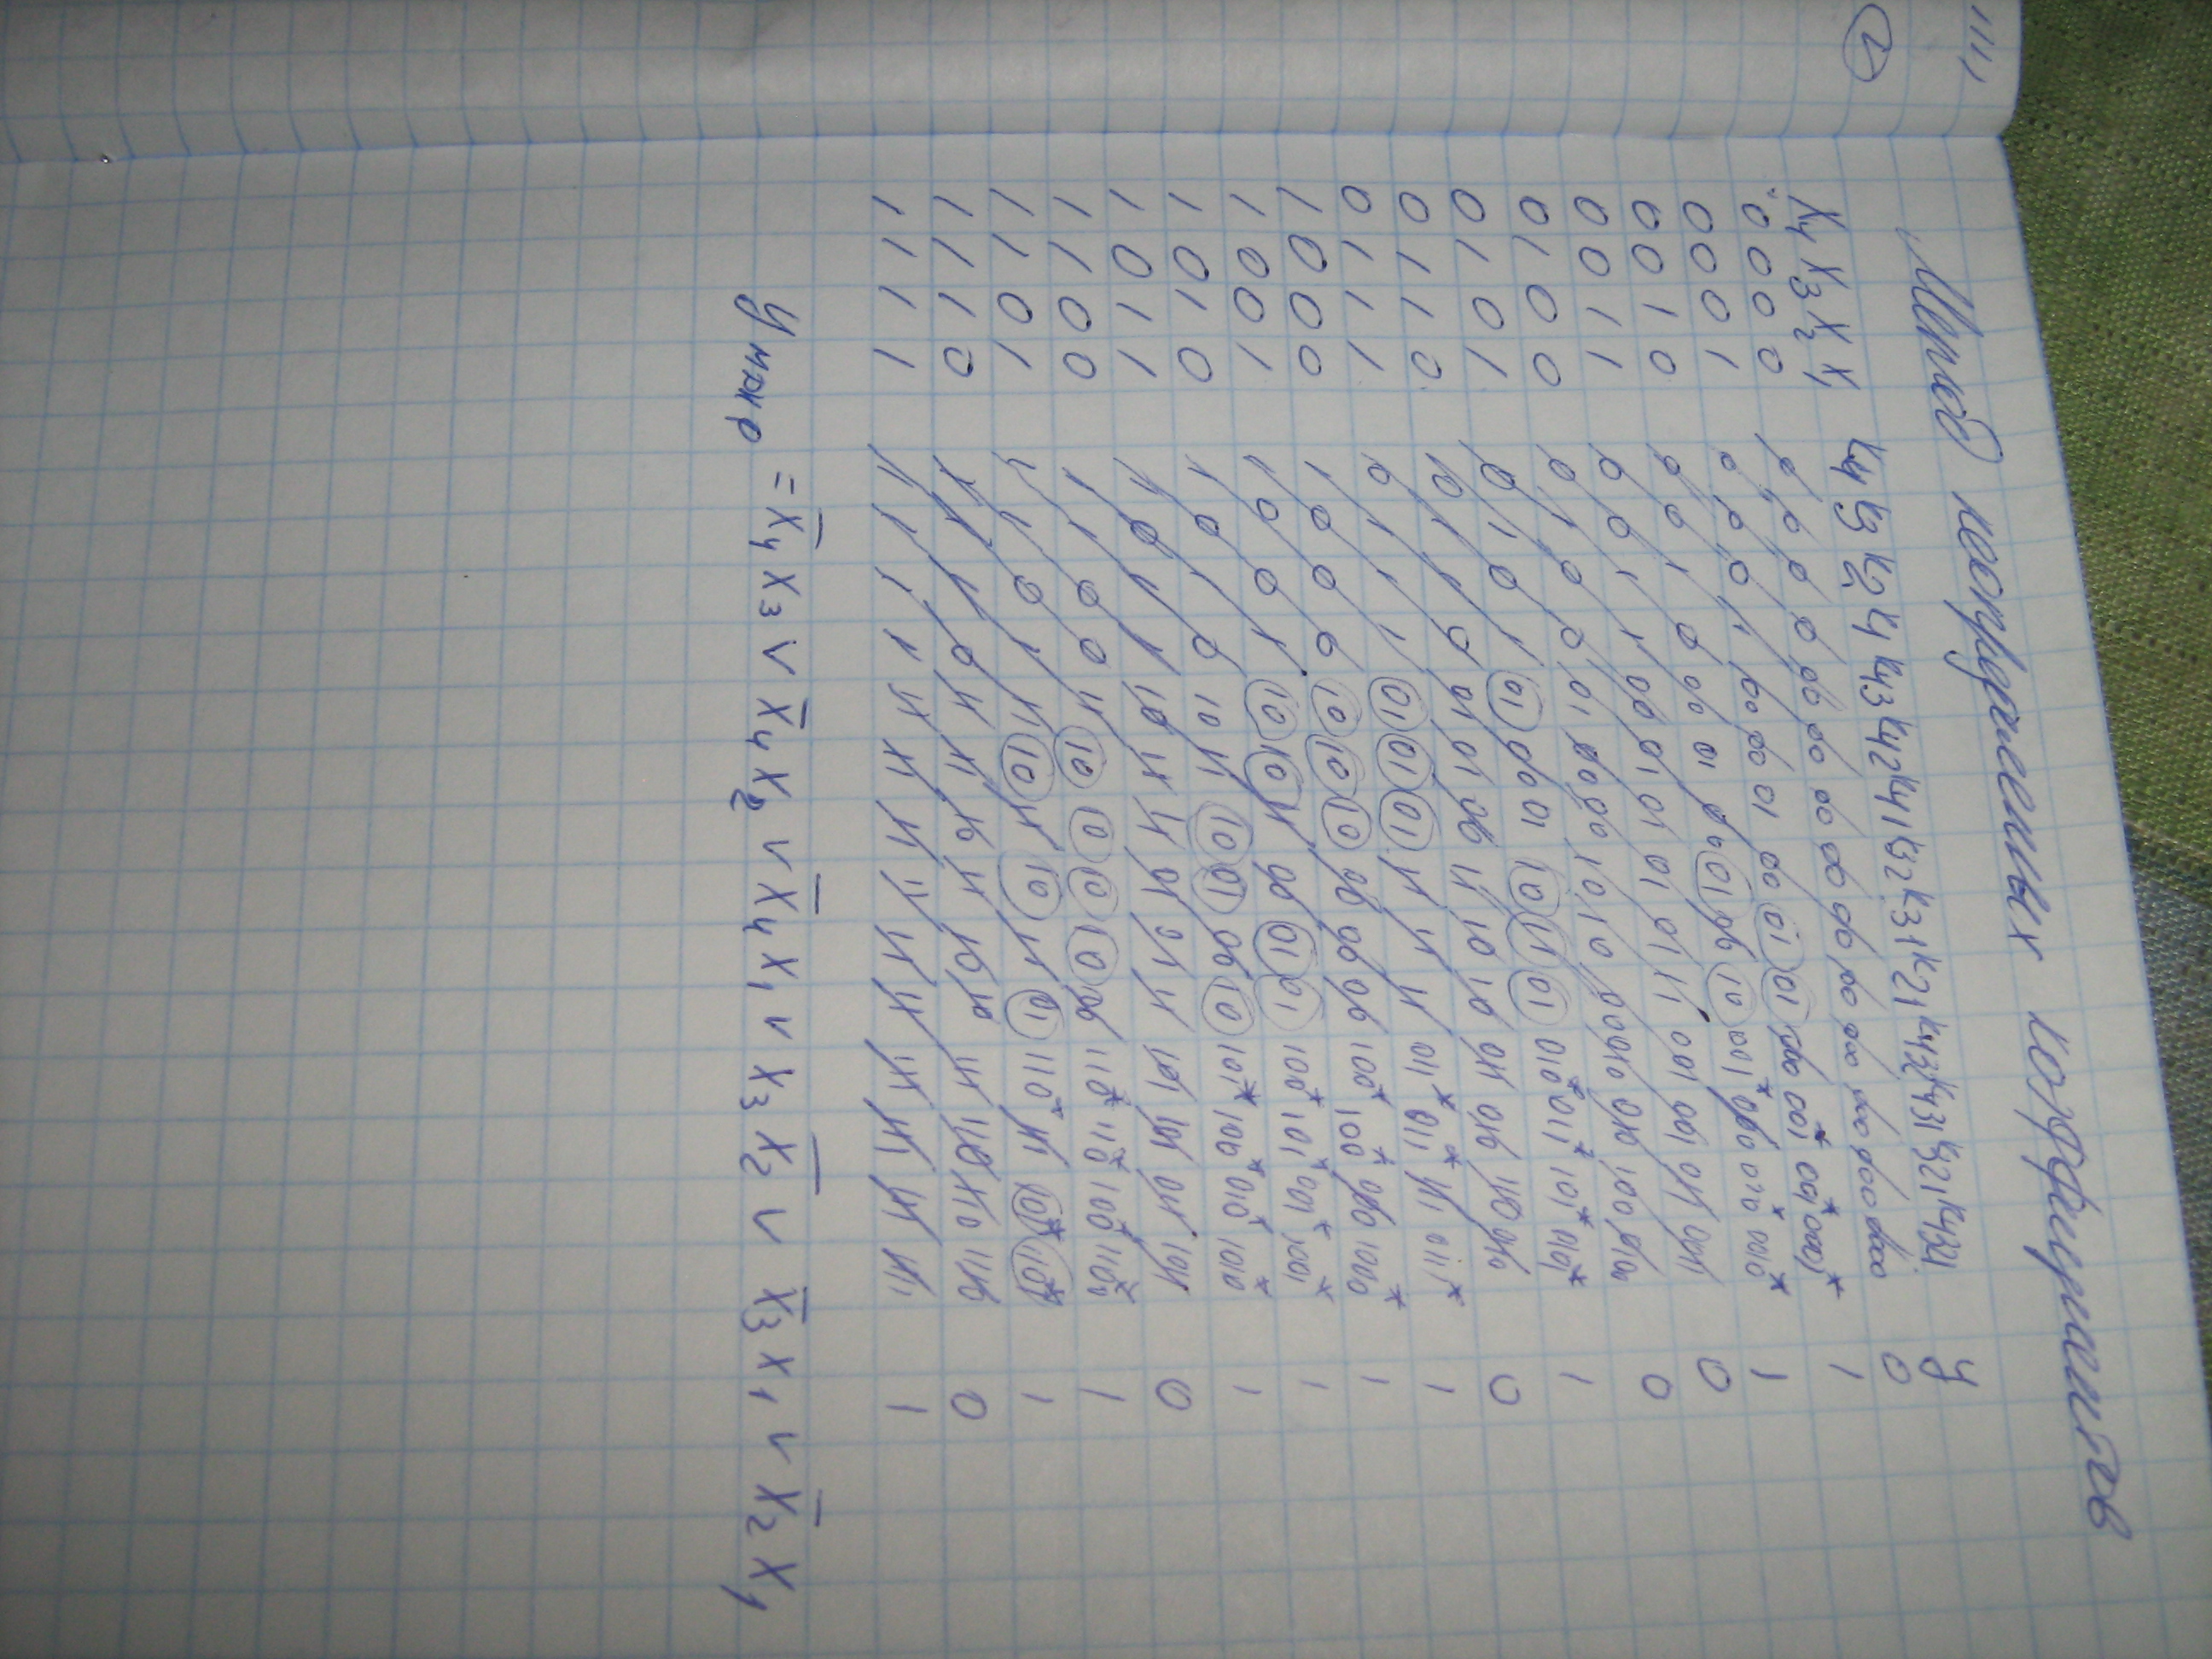 Метод неопределенных коэффициентов
X4 X3 X2 X1 K4 K3 K2 K1 K43 K42 K41 K32 K31 K21 K432 K431 K321 K4321 y
0 0 0 0 0 0 0 0 00 00 00 00 00 00 000 000 000 0000 0
0 0 0 1 0 0 0 1 00 00 01 00 01 01 000 001* 001* 0001* 1
0 0 1 0 0 0 1 0 00 01 00 01 00 10 001* 000 010* 0010* 1
0 0 1 1 0 0 1 1 00 01 01 01 01 11 001 001 011 0011 0
0 1 0 0 0 1 0 0 01 00 00 10 10 00 010 010 100 0100 0
0 1 0 1 0 1 0 1 01 00 01 10 11 01 010* 011* 101* 0101* 1
0 1 1 0 0 1 1 0 01 01 00 11 10 10 011 010 110 0110 0
0 1 1 1 0 1 1 1 01 01 01 11 11 11 011* 011* 111 0111* 1
1 0 0 0 1 0 0 0 10 10 10 00 00 00 100* 100* 000 1000* 1
1 0 0 1 1 0 0 1 10 10 11 00 01 01 100* 101* 001* 1001* 1
1 0 1 0 1 0 1 0 10 11 10 01 00 10 101* 100* 010* 1010* 1
1 0 1 1 1 0 1 1 10 11 11 01 01 11 101 101 011 1011 0
1 1 0 0 1 1 0 0 11 10 10 10 10 00 110* 110* 100* 1100* 1
1 1 0 1 1 1 0 1 11 10 11 10 11 01 110* 111 101* 1101* 1
1 1 1 0 1 1 1 0 11 11 10 11 10 10 111 110 110 1110 0
1 1 1 1 1 1 1 1 11 11 11 11 11 11 111 111 111 1111 1
y = x̅4 x3 v x̅4 x2 v x̅4 x1 v x3 x̅2 v x̅3 x1 v x̅2 x1